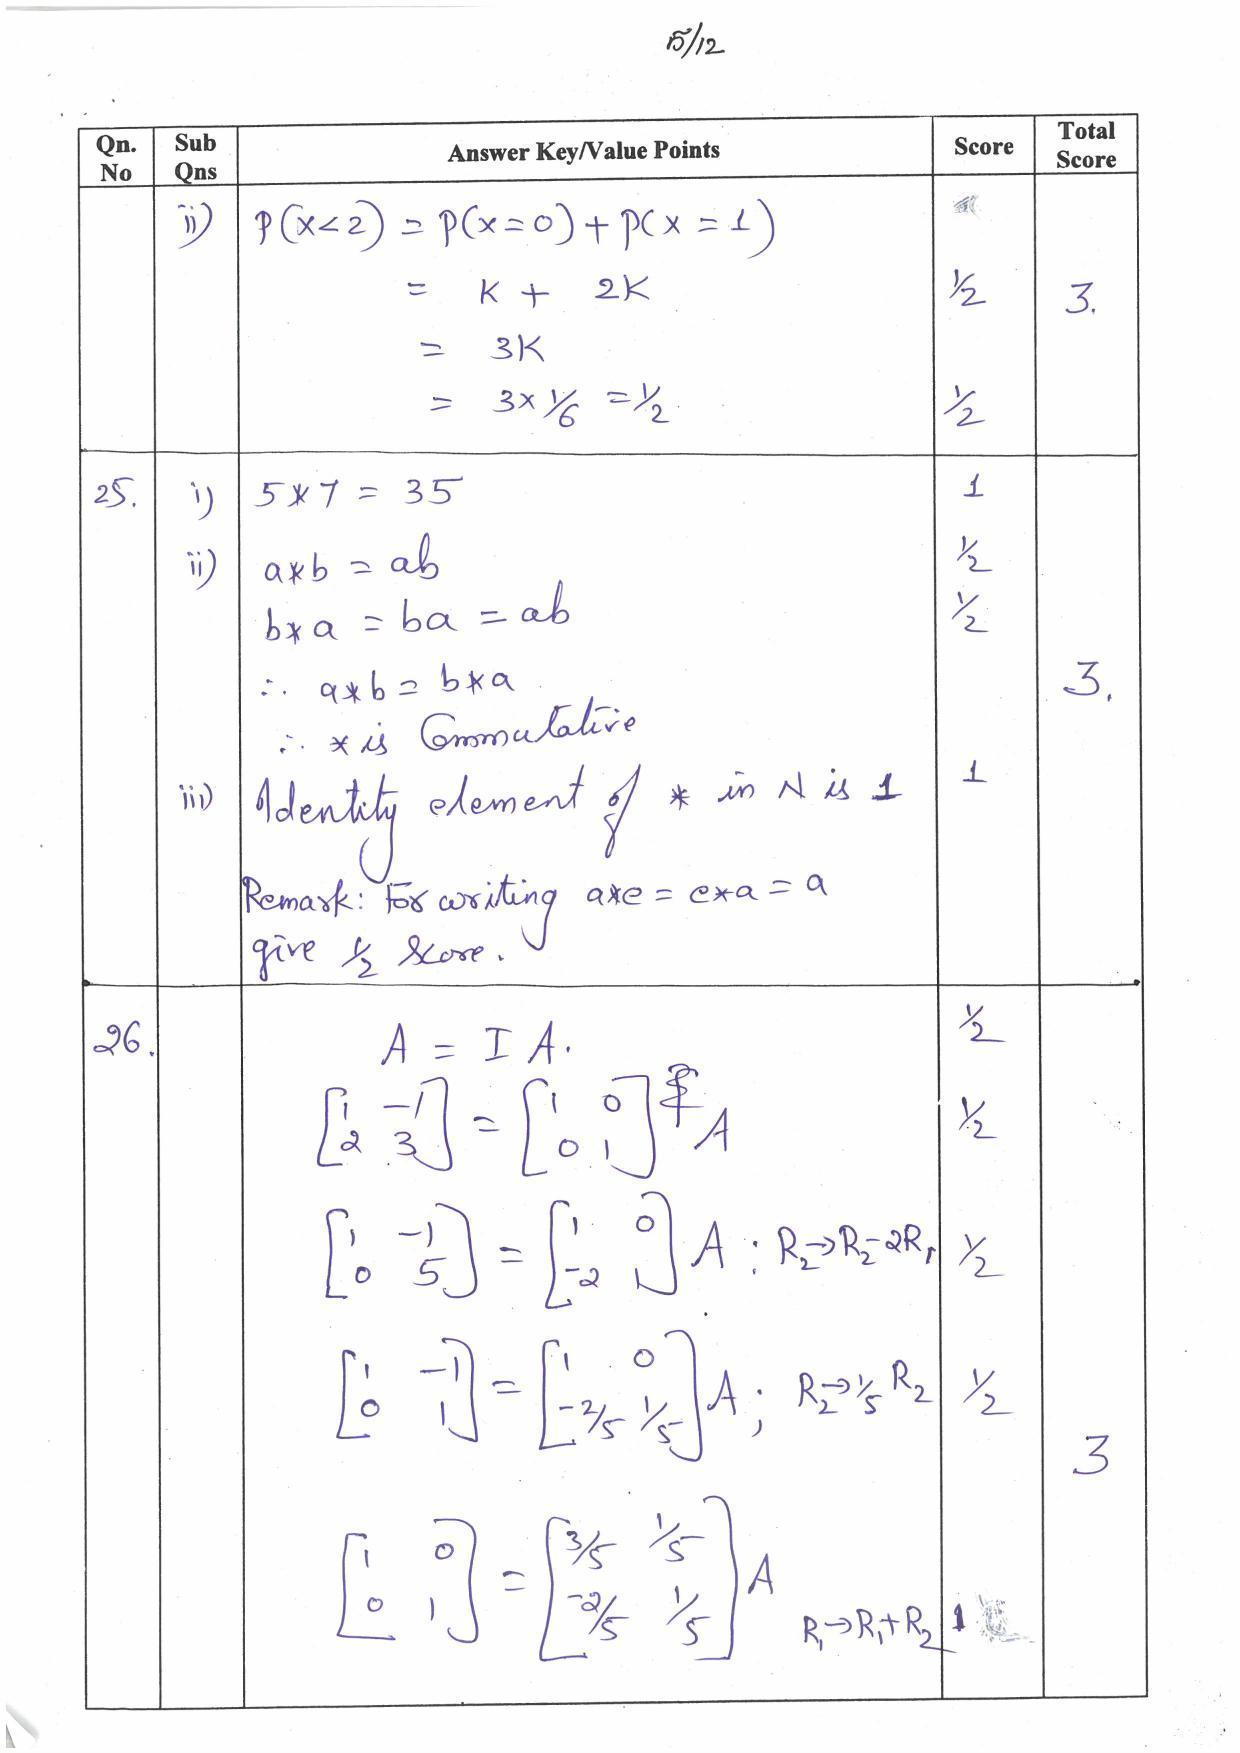 15/12
Qn. No | Sub Qns | Answer Key/Value Points | Score | Total Score
ii) P(X<2) = P(X=0) + P(X=1)
= K + 2K | ½ | 3.
= 3K
= 3 × 1/6 = ½. | ½
25. i) 5 * 7 = 35 | 1
ii) a*b = ab | ½
b*a = ba = ab | ½
∴ a*b = b*a | 3.
∴ * is Commutative
iii) Identity element of * in N is 1 | 1
Remark: For writing a*e = e*a = a
give ½ score.
26. A = I A. | ½
[1 -1; 2 3] = [1 0; 0 1] A | ½
[1 -1; 0 5] = [1 0; -2 1] A ; R₂→R₂-2R₁ | ½
[1 -1; 0 1] = [1 0; -2/5 1/5] A ; R₂→1/5 R₂ | ½
3
[1 0; 0 1] = [3/5 1/5; -2/5 1/5] A R₁→R₁+R₂ | 1